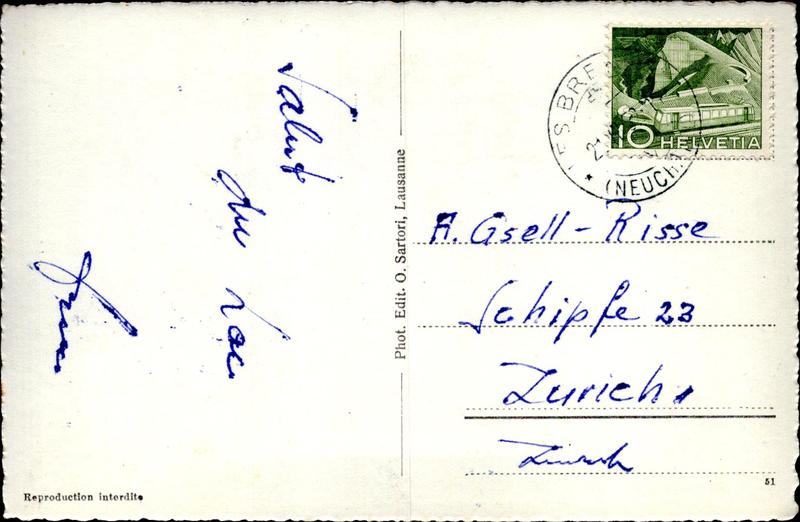 Salut
du Lac
Phot. Edit. O. Sartori, Lausanne
10 HELVETIA
LES BRE
(NEUCH
A. Gsell-Risse
Schipfe 23
Zurich
Zürich
Reproduction interdite
51